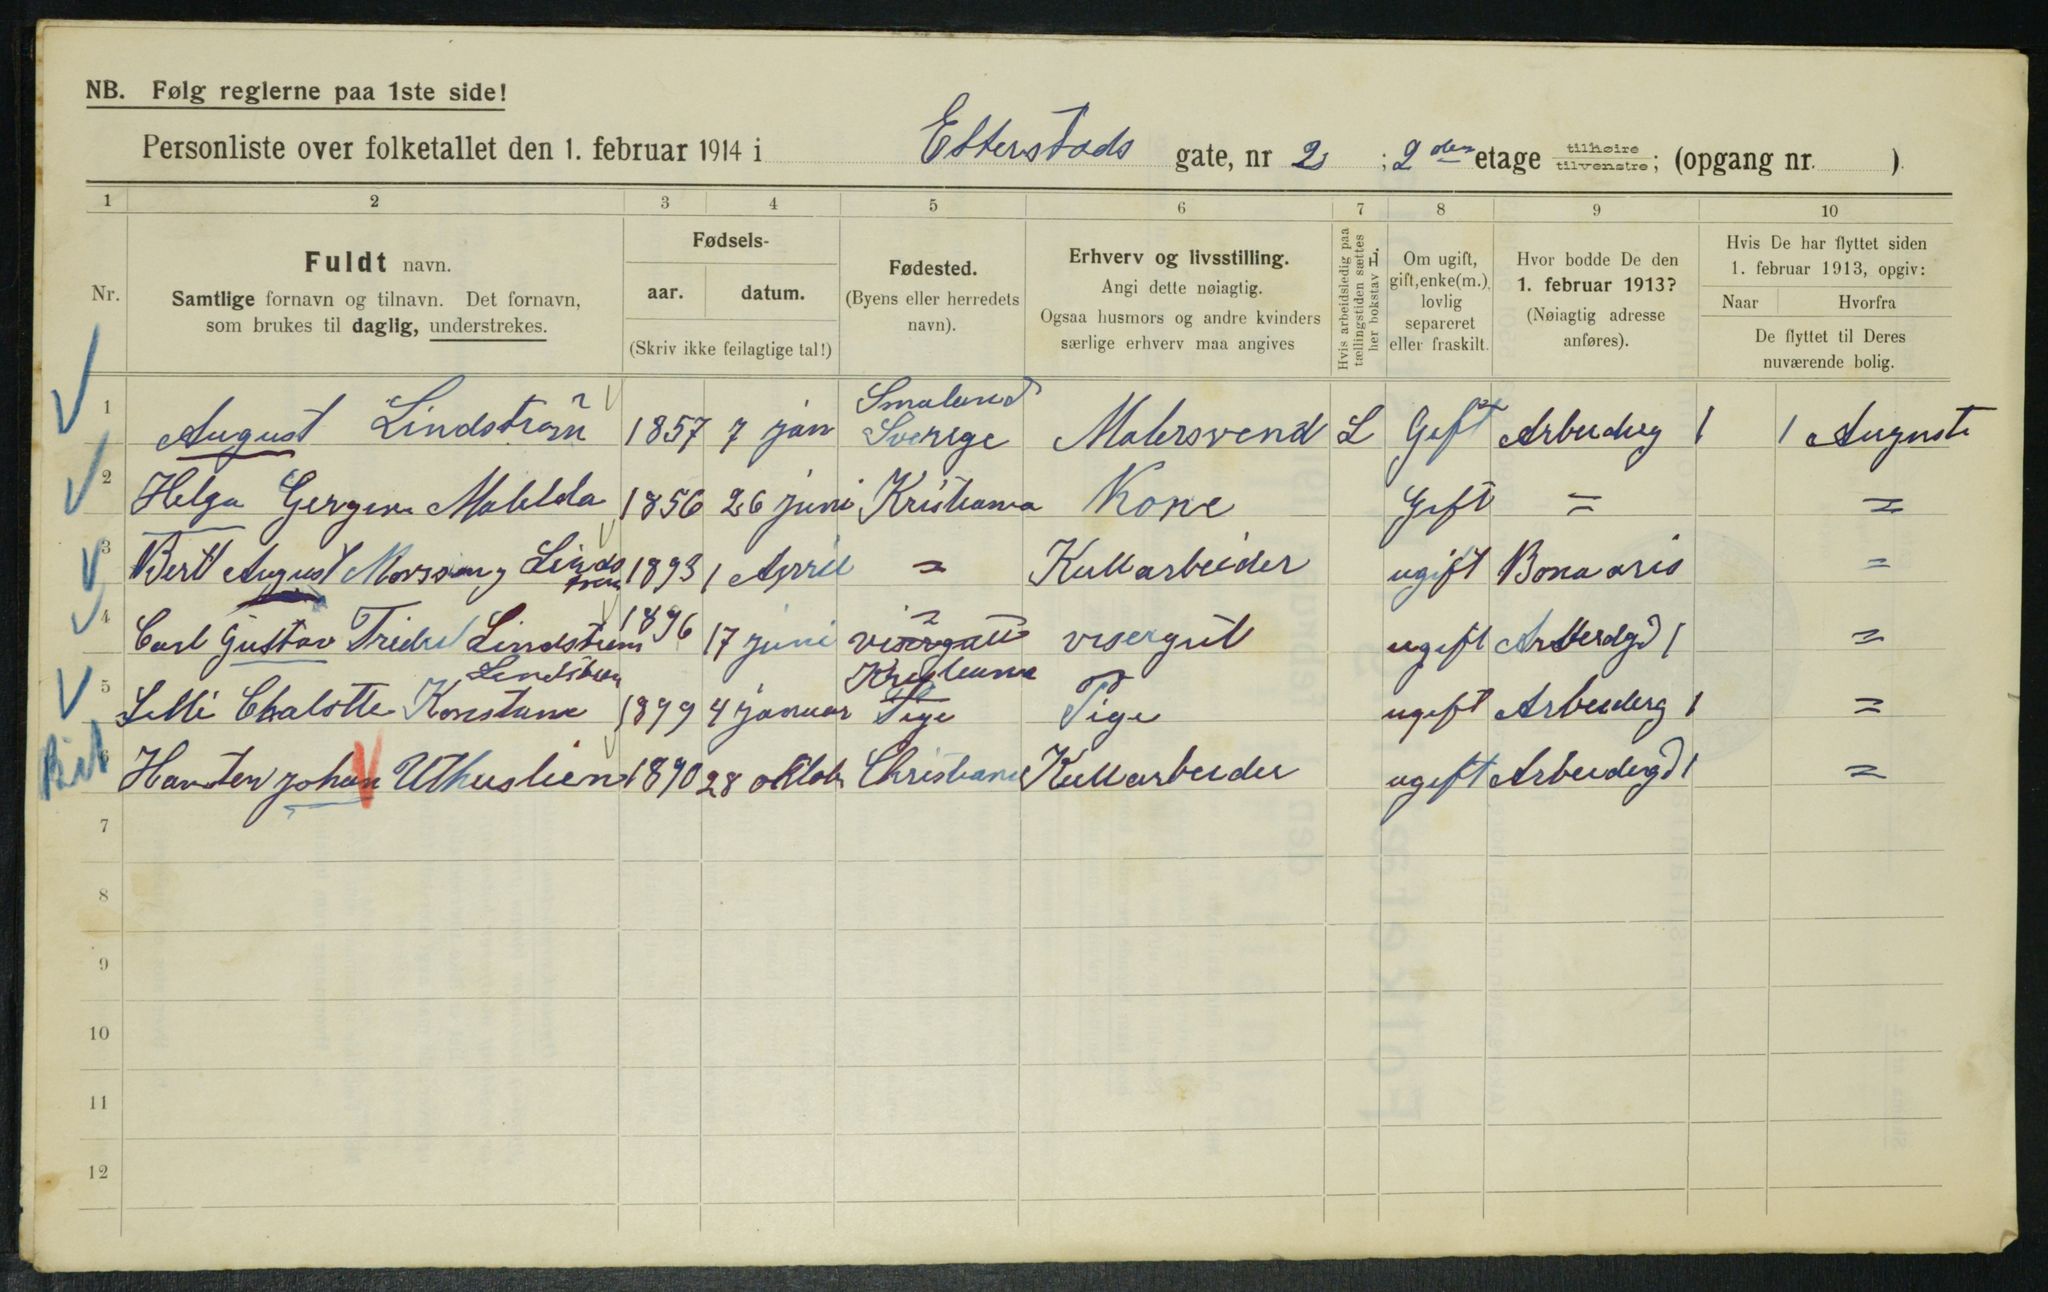 NB. Følg reglerne paa 1ste side!
Personliste over folketallet den 1. februar 1914 i Etterstads gate, nr 2 ; 2den etage tilhøire tilvenstre; (opgang nr. )
1 2 3 4 5 6 7 8 9 10
Nr.
Fuldt navn.
Samtlige fornavn og tilnavn. Det fornavn,
som brukes til daglig, understrekes.
Fødsels-
aar. datum.
(Skriv ikke feilagtige tal!)
Fødested.
(Byens eller herredets
navn).
Erhverv og livsstilling.
Angi dette nøiagtig.
Ogsaa husmors og andre kvinders
særlige erhverv maa angives
Hvis arbeidsledig paa
tællingstiden sættes
her bokstav L.
Om ugift,
gift, enke(m.),
lovlig
separeret
eller fraskilt.
Hvor bodde De den
1. februar 1913?
(Nøiagtig adresse
anføres).
Hvis De har flyttet siden
1. februar 1913, opgiv:
Naar Hvorfra
De flyttet til Deres
nuværende bolig.
1 August Lindström 1857 7 jan Smaland Sverige Malersvend L Gift Arbeiderg 1 1 Auguste
2 Helga Matilda 1856 26 juni Kristiania Kone Gift = =
3 Bertl August Lindstrøm 1893 1 April = Kullarbeider ugift Bonaaris =
4 Carl Gustav Lindstrøm 1896 17 juni = visergutt visergut ugift Arbeidgd 1 =
5 Lilli Chalotte Konstanse Lindstrøm 1899 4 januar Kristiania Pige Pige ugift Arbeiderg 1 =
6 Karsten johan Uthuslien 1890 28 oktob Christiania Kullarbeider ugift Arbeidergd 1 =
7
8
9
10
11
12